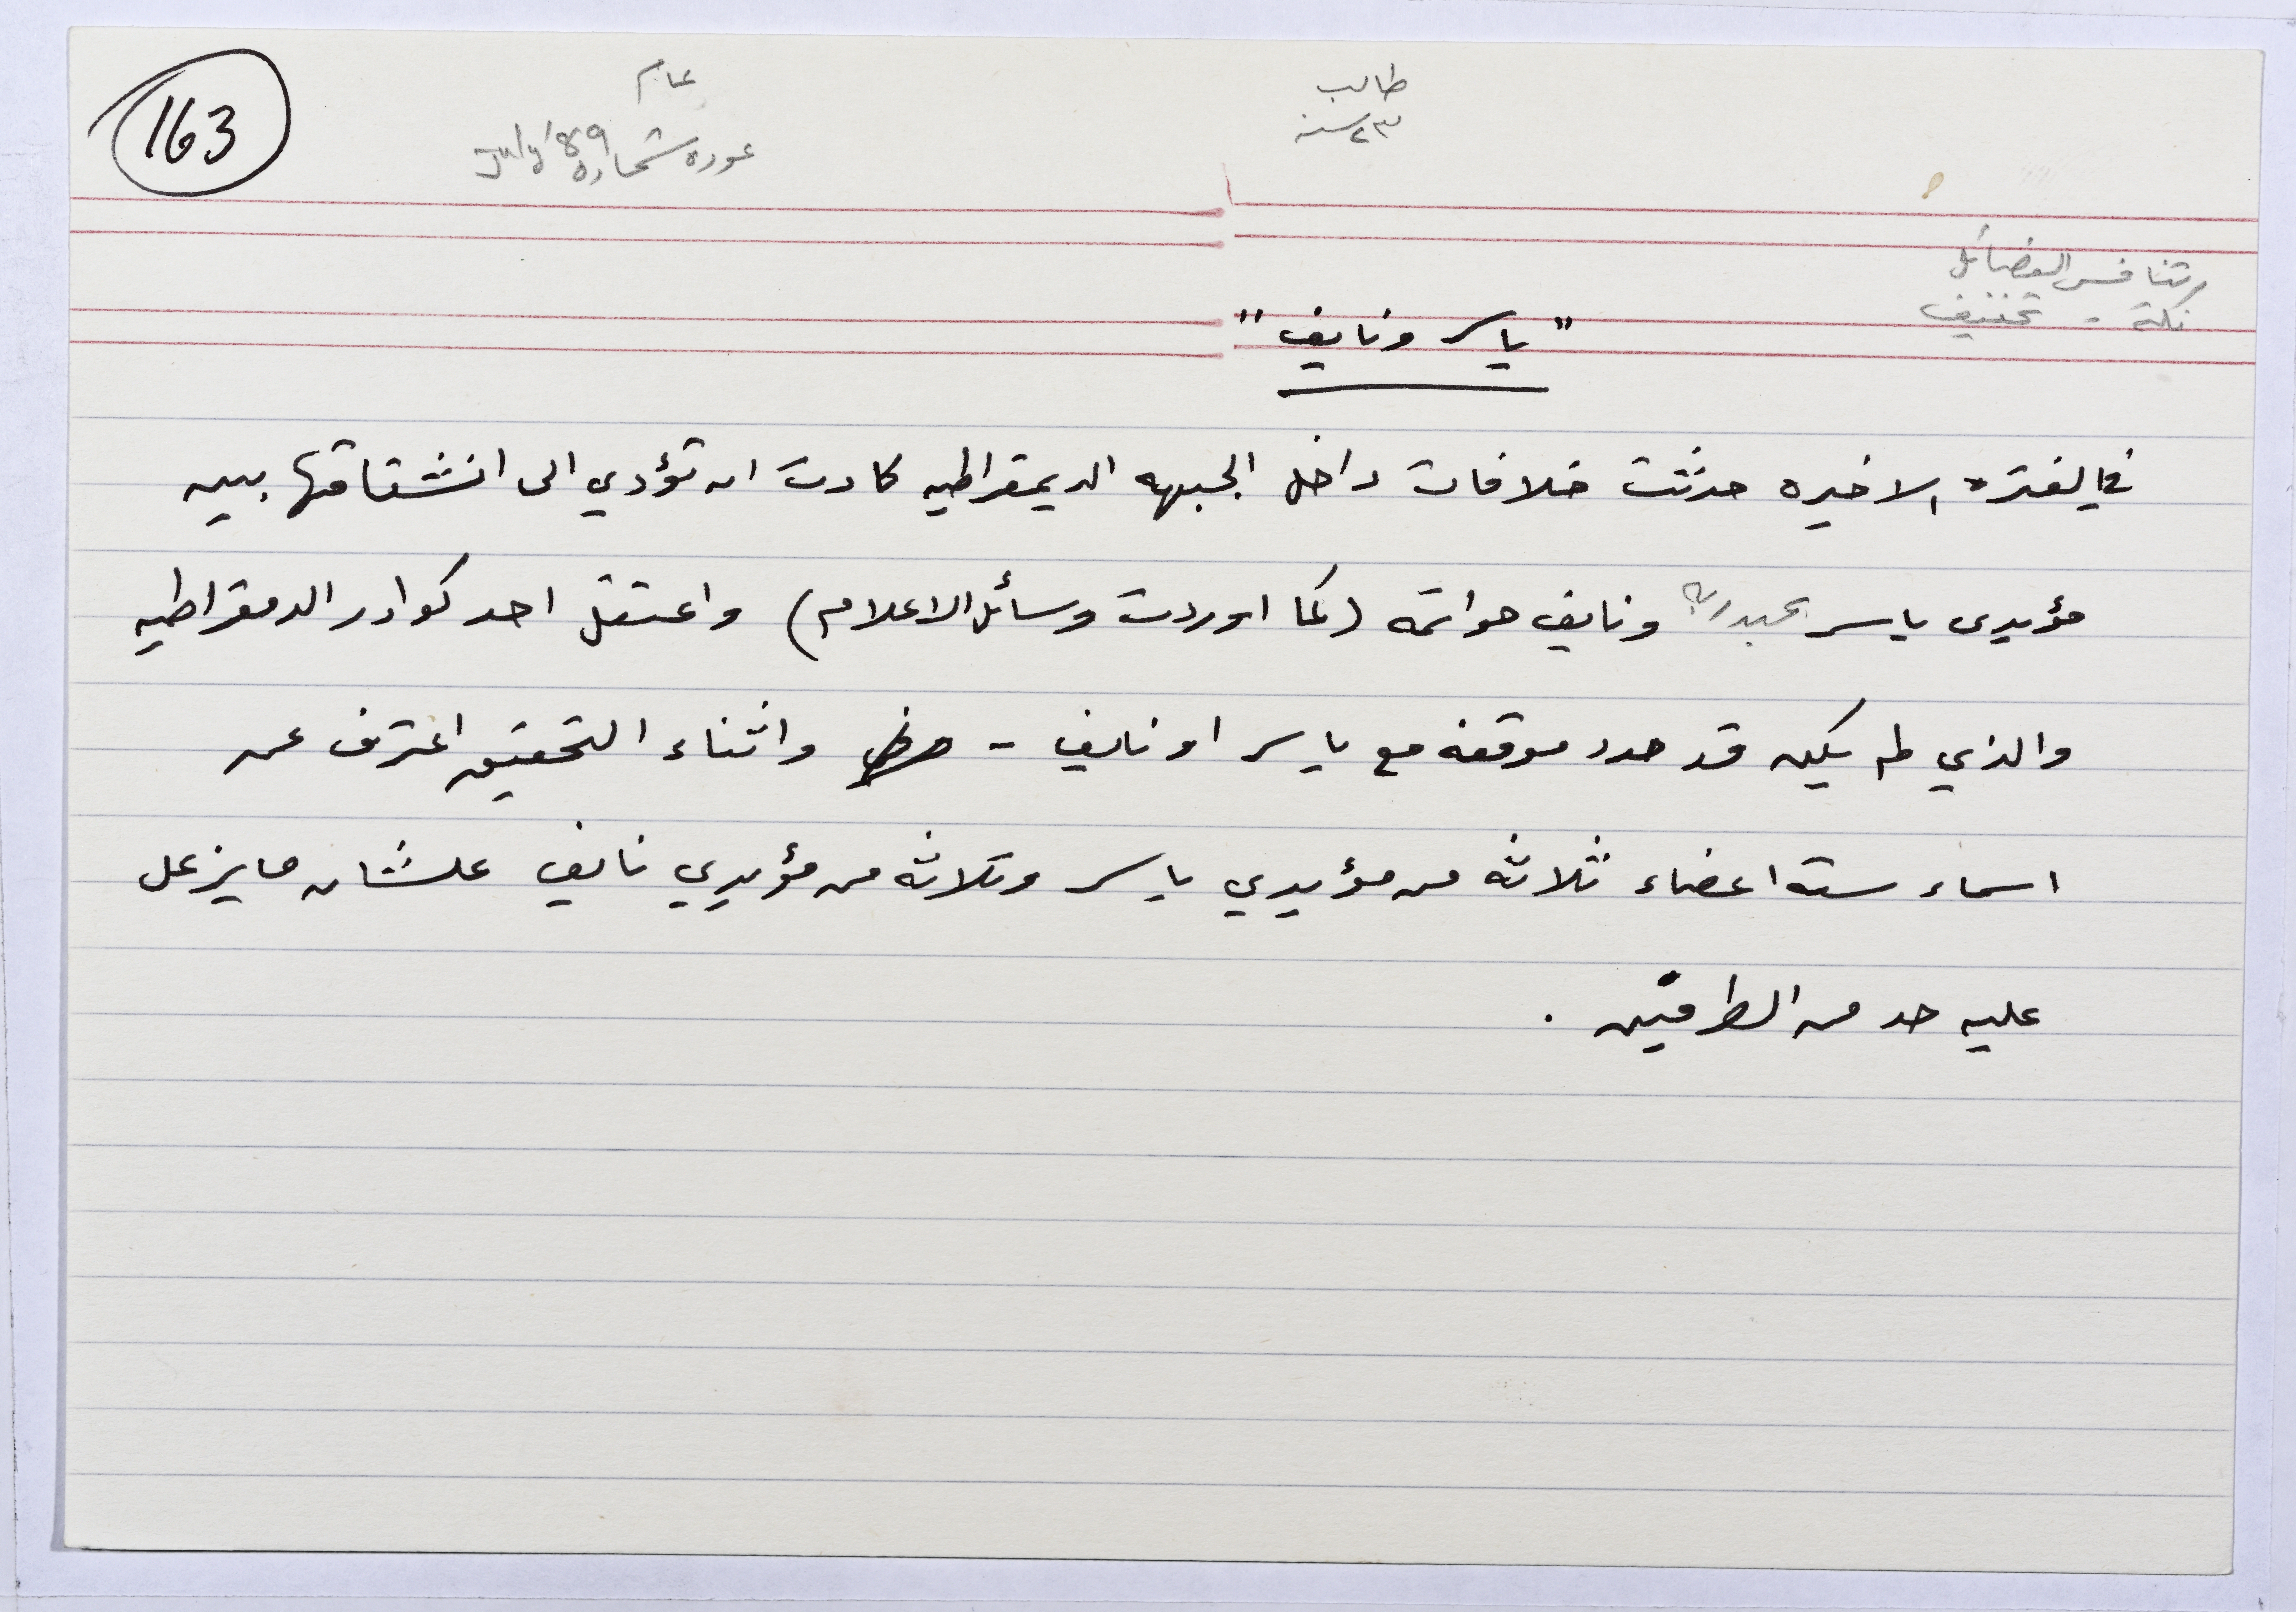 163
عام
عوده شحاده July '89
طالب
٢٣ سنه
تنافس الفصائل
نكتة - تخفيف
"ياسر ونايف"
في الفتره الاخيره حدثت خلافات داخل الجبهه الديمقراطيه كادت ان تؤدي الى انشقاقها بين
مؤيدى ياسر عبدربه ونايف حواتمه (كما اوردت وسائل الاعلام) واعتقل احد كوادر الدمقراطيه
والذي لم يكن قد حدد موقفه مع ياسر او نايف - واثناء التحقيق اعترف عن
اسماء ستة اعضاء ثلاثه من مؤيدي ياسر وثلاثه من مؤيدي نايف علشان مايزعل
عليه حد من الطرفين .